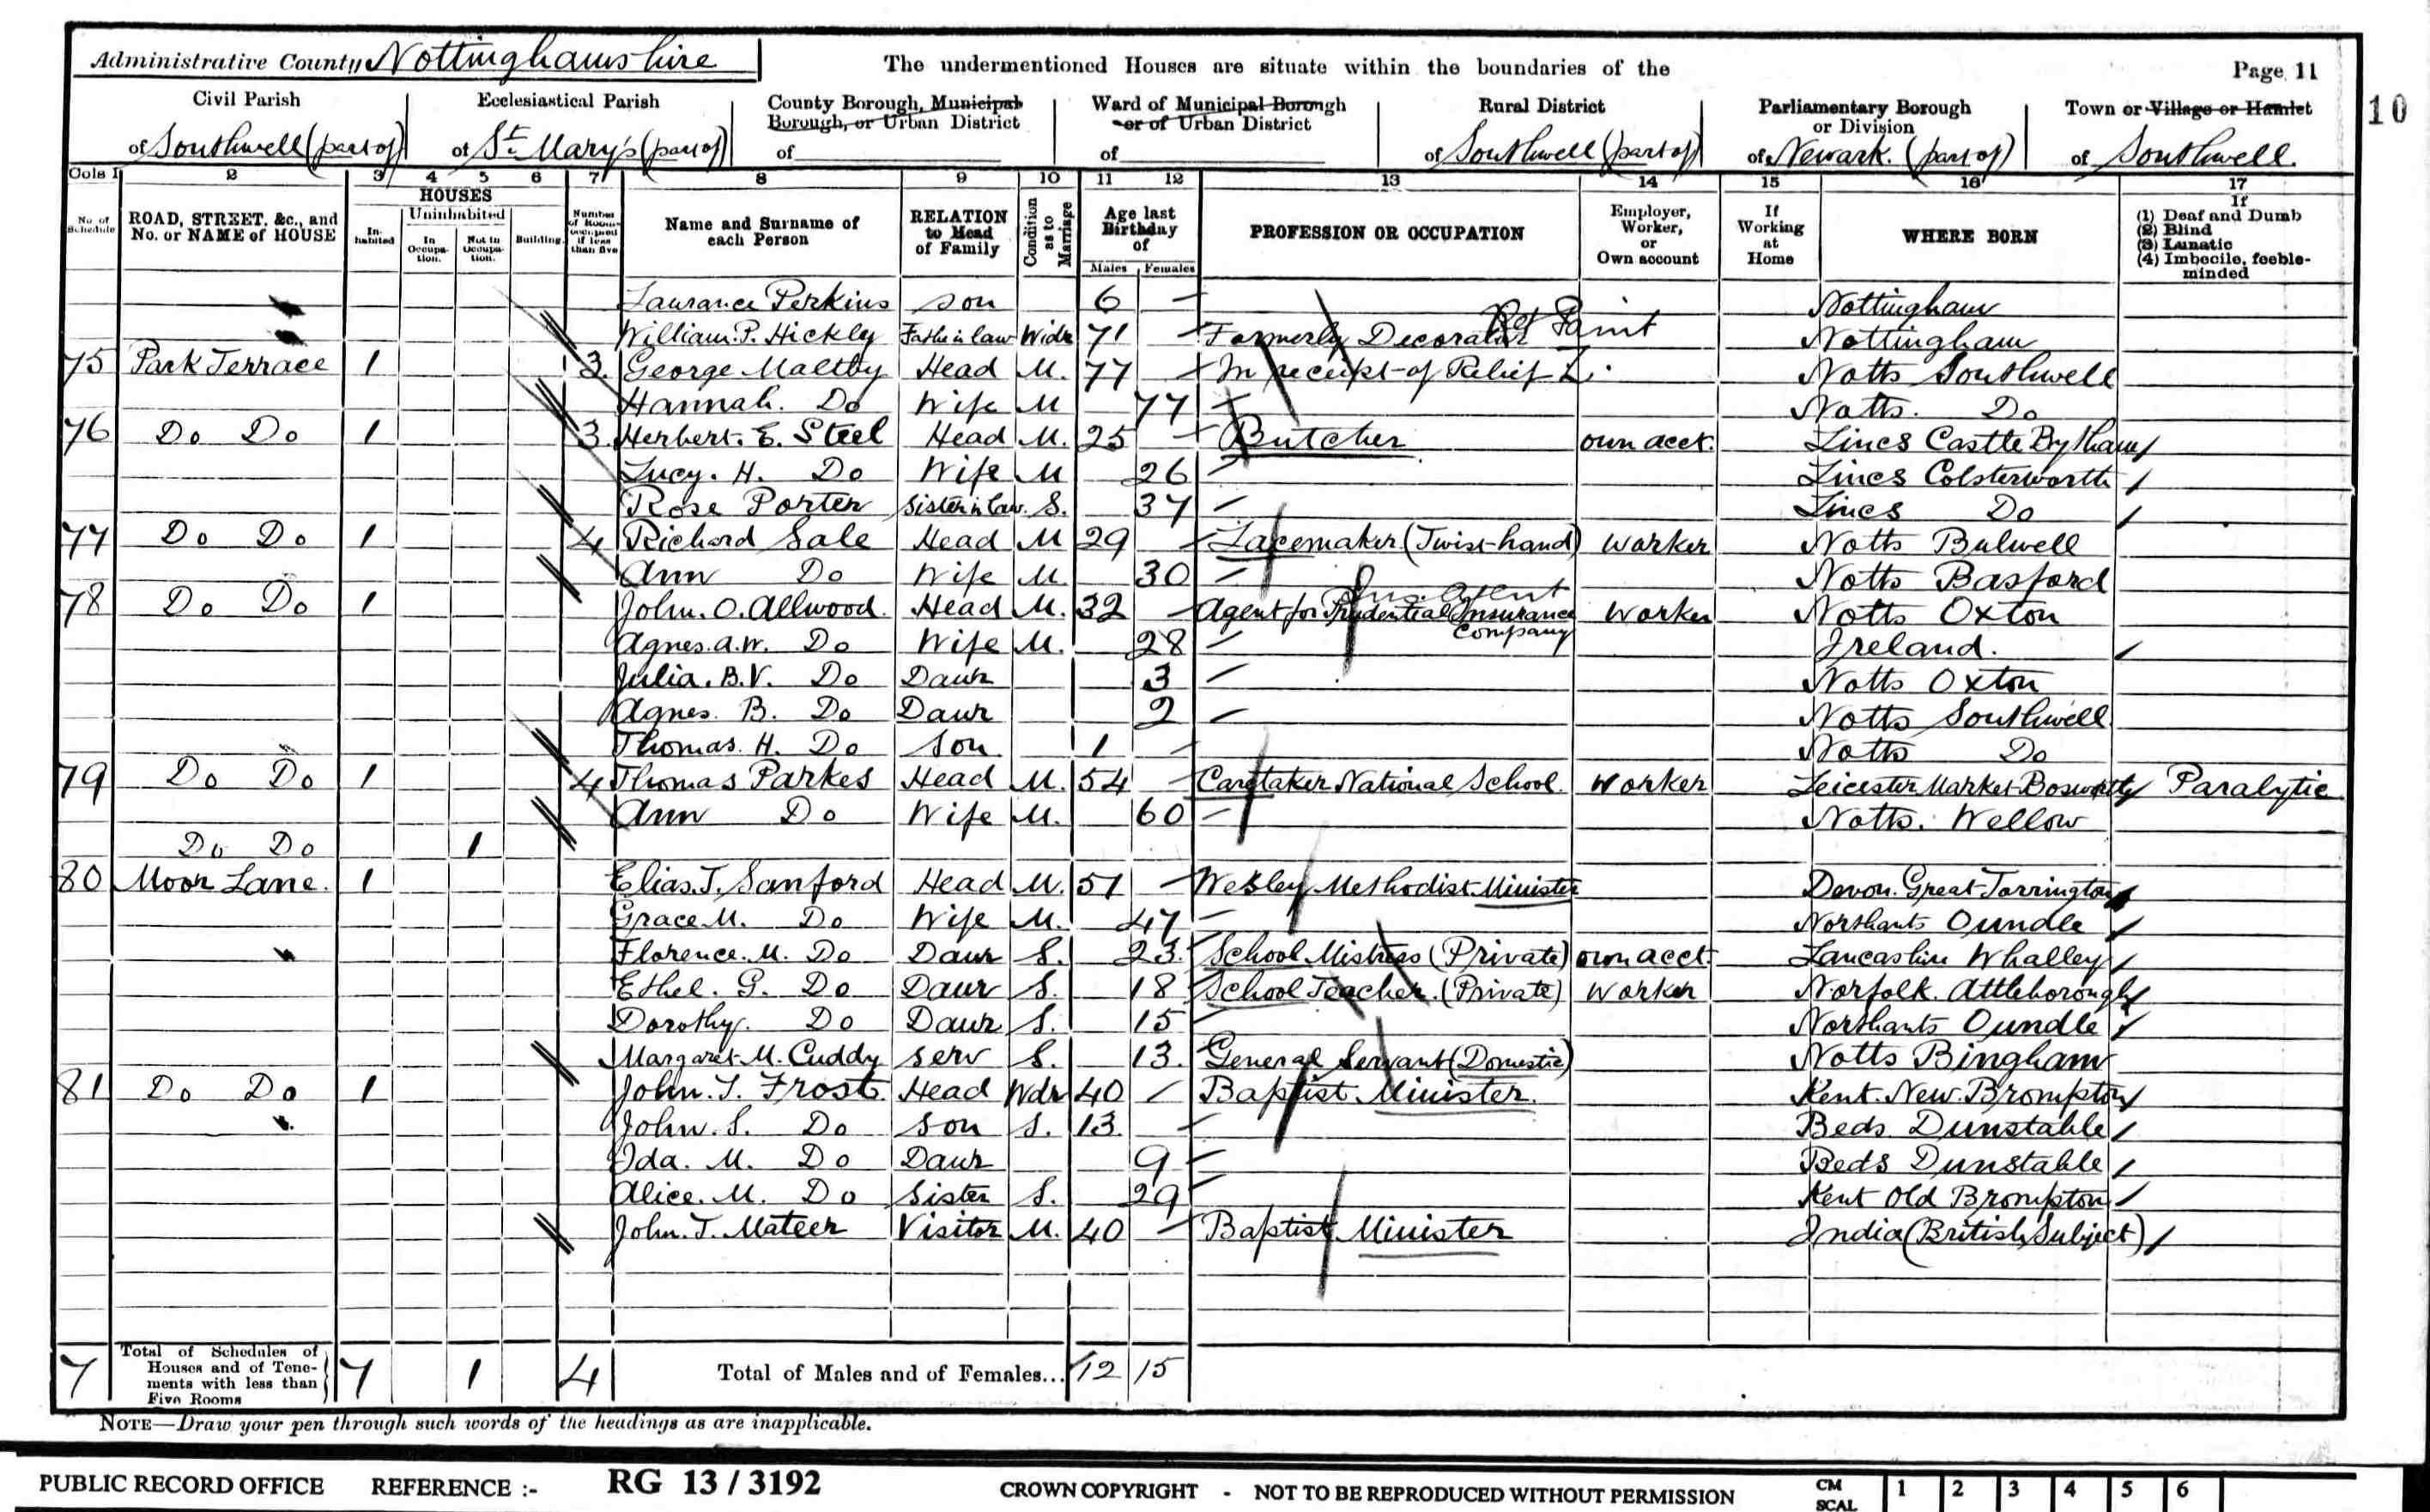 Administrative County Nottinghamshire The undermentioned Houses are situate within the boundaries of the Page 11
10
Civil Parish Ecclesiastical Parish County Borough, Municipal Borough, or Urban District Ward of Municipal Borough or of Urban District Rural District Parliamentary Borough or Division Town or Village or Hamlet
of Southwell (part of) of St Mary's (part of) of of of Southwell (part of) of Newark. (part of) of Southwell.
Cols 1 2 3 4 5 6 7 8 9 10 11 12 13 14 15 16 17
No. of Schedule ROAD, STREET, &c., and No. or NAME of HOUSE HOUSES In-habited Uninhabited In Occupa-tion. Not in Occupa-tion. Building Number of Rooms occupied if less than five Name and Surname of each Person RELATION to Head of Family Condition as to Marriage Age last Birthday of Males Females PROFESSION OR OCCUPATION Employer, Worker, or Own account If Working at Home WHERE BORN If (1) Deaf and Dumb (2) Blind (3) Lunatic (4) Imbecile, feeble-minded
Laurance Perkins son 6 Nottingham
William. P. Hickly Father in law Widr 71 Formerly Decorator Paint Nottingham
75 Park Terrace 1 3. George Maltby Head M. 77 In receipt of Relief Notts Southwell
Hannah. Do Wife M 77 Notts. Do
76 Do Do 1 3. Herbert. E. Steel Head M. 25 Butcher own acct. Lincs Castle Bytham
Lucy. H. Do Wife M 26 Lincs Colsterworth
Rose Porter Sister in law. S. 37 Lincs Do
77 Do Do 1 4 Richard Sale Head M 29 Lacemaker (Twist-hand) Worker Notts Bulwell
Ann Do Wife M. 30 Notts Basford
78 Do Do 1 John. O. Allwood. Head M. 32 Agent for Prudential Insurance Company Ins. Agent Worker Notts Oxton
Agnes. A. W. Do Wife M. 28 Ireland.
Julia. B. V. Do Daur 3 Notts Oxton
Agnes. B. Do Daur 2 Notts Southwell
Thomas. H. Do son 1 Notts Do
79 Do Do 1 4 Thomas Parkes Head M. 54 Caretaker National School. Worker Leicester Market Bosworth Paralytic
Ann Do Wife M. 60 Notts. Wellow
Do Do 1
80 Moor Lane. 1 Elias. J. Sanford Head M. 51 Wesley Methodist Minister Devon. Great Torrington
Grace M. Do Wife M. 47 Northants Oundle
Florence. M. Do Daur S. 23. School Mistress (Private) own acct. Lancashire Whalley
Ethel. G. Do Daur S. 18 School Teacher. (Private) Worker Norfolk. Attleborough
Dorothy. Do Daur S. 15 Northants Oundle
Margaret M. Cuddy serv S. 13. General Servant (Domestic) Notts Bingham
81 Do Do 1 John. J. Frost. Head Wdr 40 Baptist Minister. Kent. New. Brompton
John. S. Do son S. 13. Beds. Dunstable
Ida. M. Do Daur 9 Beds Dunstable
Alice. M. Do Sister S. 29 Kent Old Brompton
John. T. Mateer Visitor M. 40 Baptist Minister India (British Subject)
7 Total of Schedules of Houses and of Tene-ments with less than Five Rooms 7 1 4 Total of Males and of Females... 12 15
NOTE—Draw your pen through such words of the headings as are inapplicable.
PUBLIC RECORD OFFICE REFERENCE :- RG 13 / 3192 CROWN COPYRIGHT - NOT TO BE REPRODUCED WITHOUT PERMISSION CM SCAL 1 2 3 4 5 6